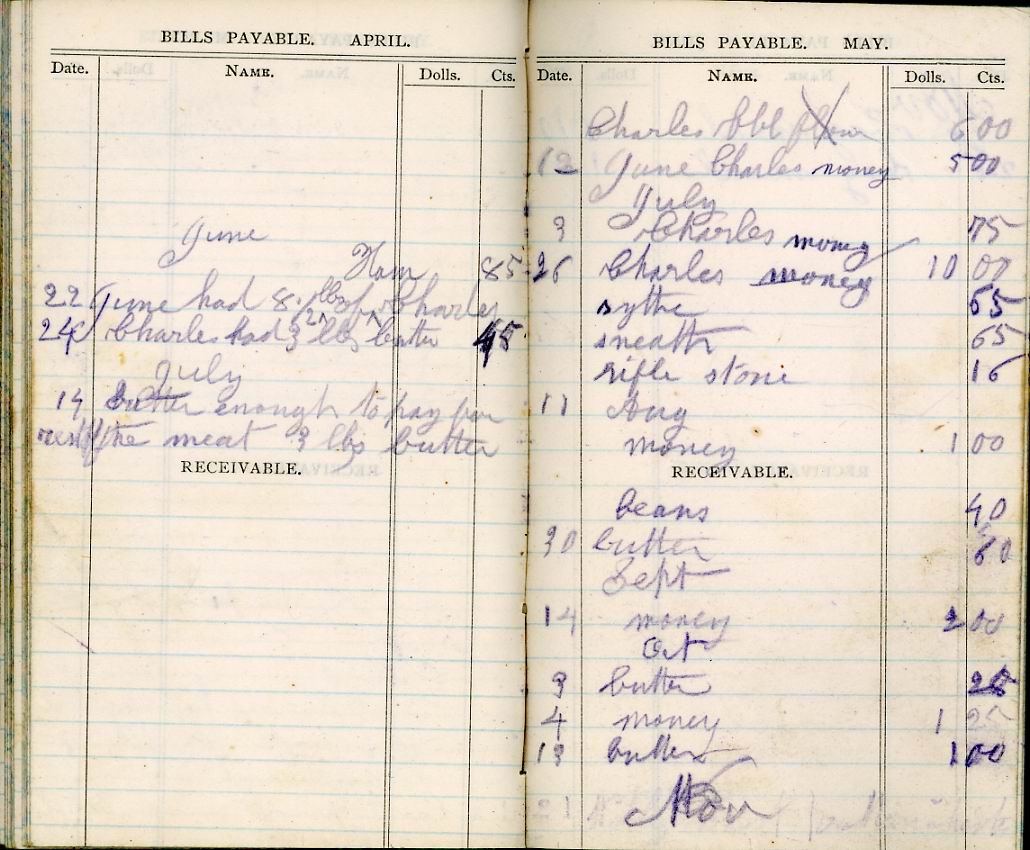 BILLS PAYABLE. APRIL.
Date. NAME. Dolls. Cts.
June
Ham 85
22 June had 8 lbs of Charles
24 Charles had 3 lbs butter 45
July
14 butter enough to pay for
rest of the meat 3 lbs butter
RECEIVABLE.
BILLS PAYABLE. MAY.
Date. NAME. Dolls. Cts.
Charles bbl flour 6 00
12 June Charles money 5 00
July
3 Charles money 75
26 Charles money 10 00
sythe 65
sneath 65
rifle stone 16
11 Aug
money 1 00
RECEIVABLE.
beans 40
30 butter 60
Sept
14 money 2 00
Oct
3 butter 25
4 money 1 25
13 butter 1 00
Nov
21